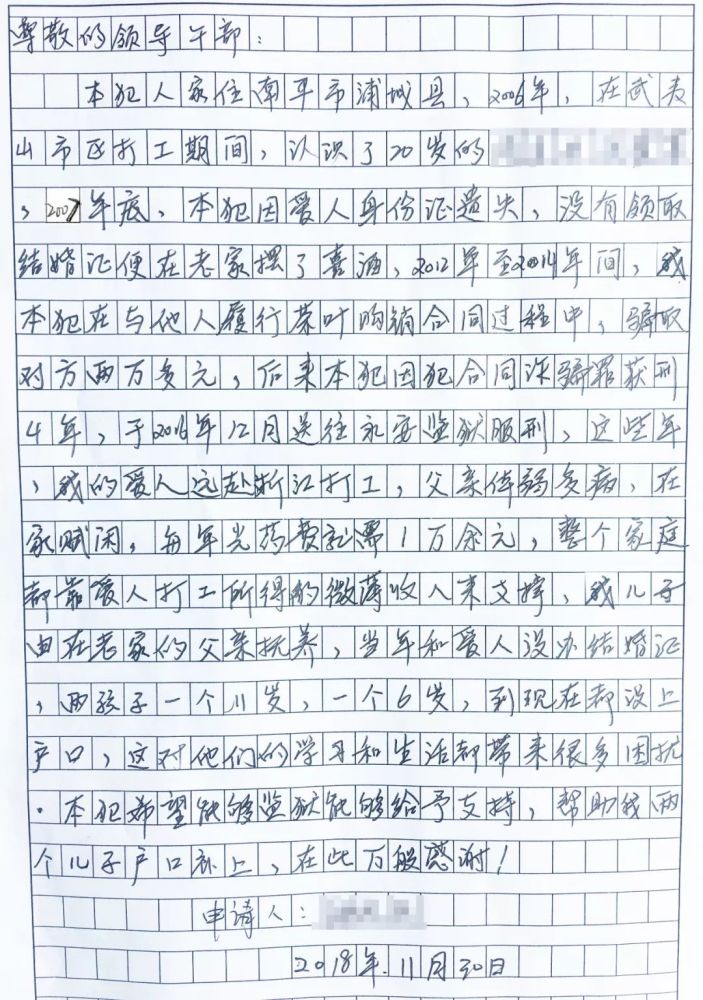 尊敬的领导干部：
本犯人家住南平市浦城县，2006年，在武夷
山市区打工期间，认识了20岁的
，2007年底，本犯因爱人身份证遗失，没有领取
结婚证便在老家摆了喜酒，2012年至2014年间，我
本犯在与他人履行茶叶购销合同过程中，骗取
对方两万多元，后来本犯因犯合同诈骗罪获刑
4年，于2016年12月送往永安监狱服刑，这些年
，我的爱人远赴浙江打工，父亲体弱多病，在
家赋闲，每年光药费就需1万余元，整个家庭
都靠爱人打工所得的微薄收入来支撑，我儿子
由在老家的父亲抚养，当年和爱人没办结婚证
，两孩子一个11岁，一个6岁，到现在都没上
户口，这对他们的学习和生活都带来很多困扰
．本犯希望能够监狱能够给予支持，帮助我两
个儿子户口补上，在此万般感谢！
申请人：
2018年.11月30日